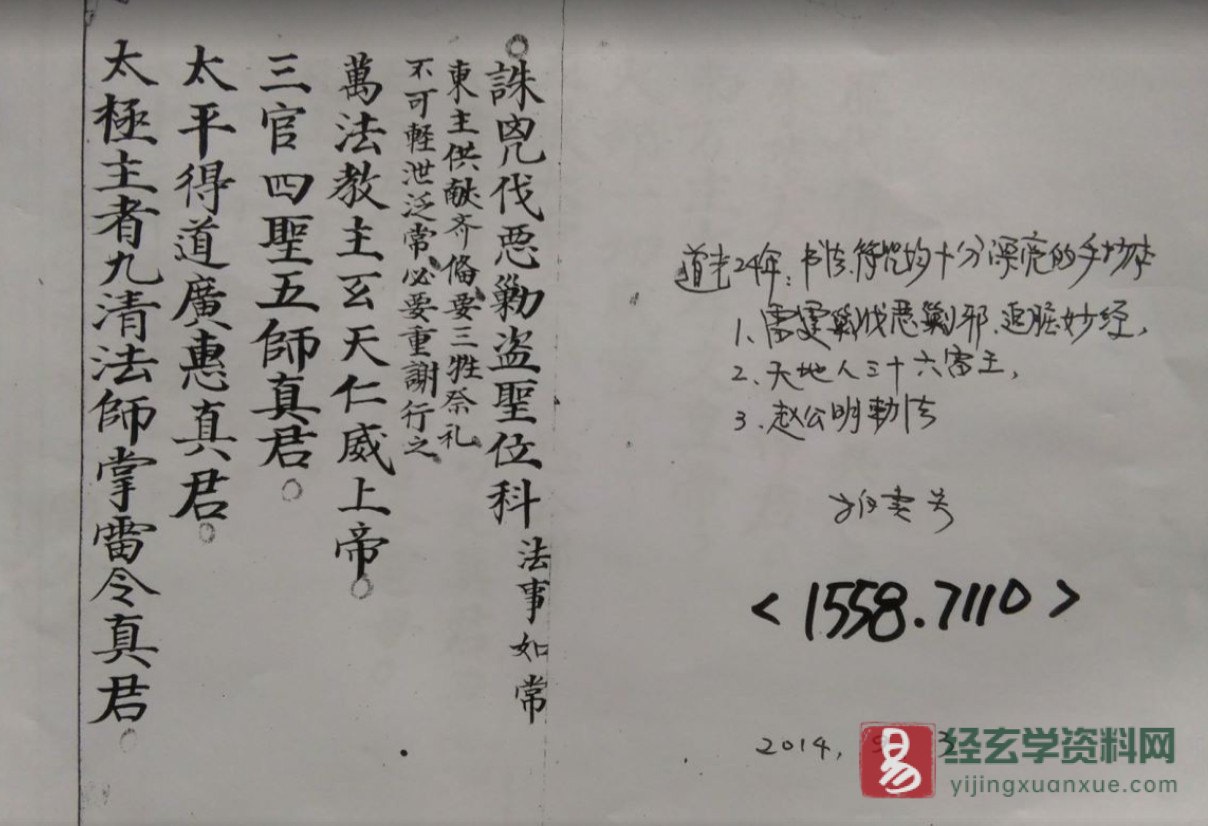 誅凶伐惡勦盗聖位科 法事如常
東主供献齐俻要三牲祭礼
不可軽泄泛常必要重謝行之
萬法教主玄天仁威上帝
三官四聖五師真君
太平得道廣惠真君
太極主者九清法師掌雷令真君
道光24年：书法、符咒均十分漂亮的手抄本
1、雷霆 伐恶剿邪、追 妙经，
2、天地人三十六雷王，
3、赵公明勅法
<1558.7110>
2014，
易
经玄学资料网
yijingxuanxue.com